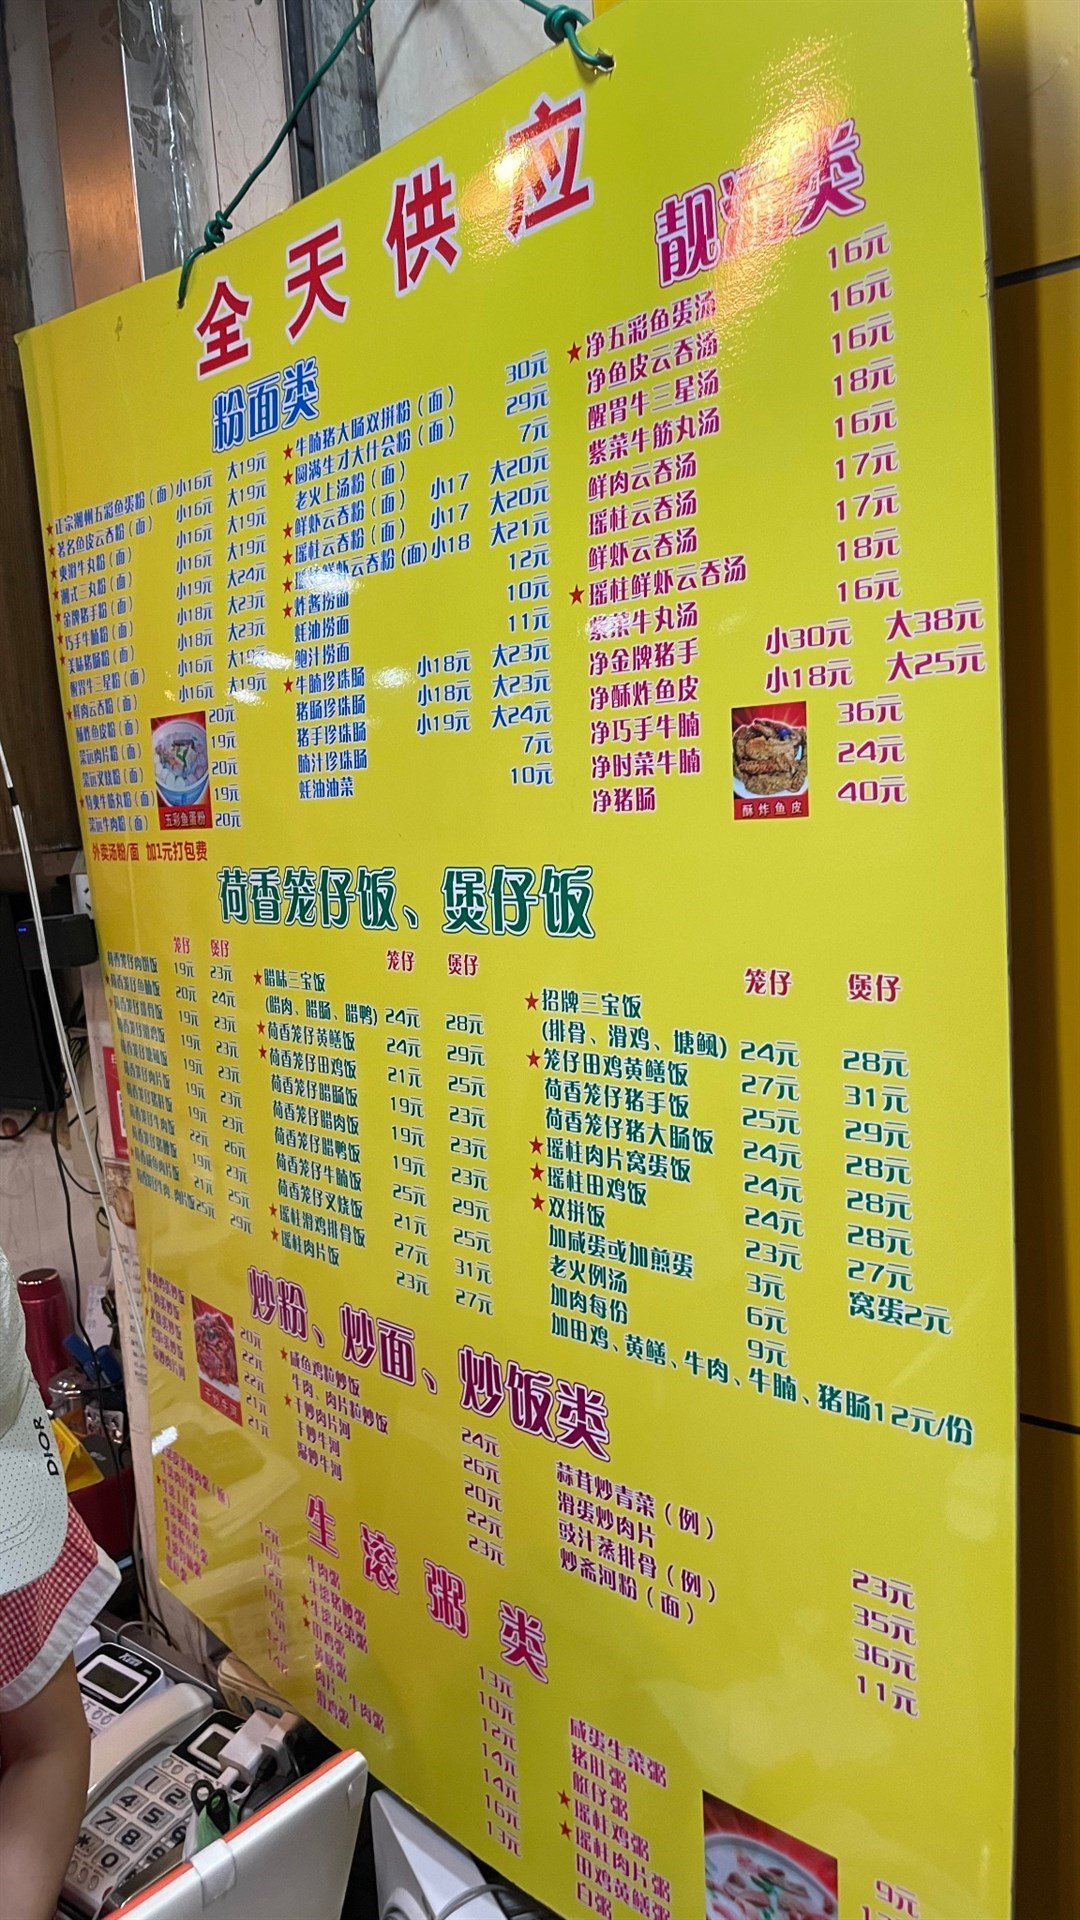 全天供应
粉面类
★正宗潮州五彩鱼蛋粉（面）小16元 大19元
★著名鱼皮云吞粉（面） 小16元 大19元
★爽滑牛丸粉（面） 小16元 大19元
潮式三丸粉（面） 小16元 大19元
★金牌猪手粉（面） 小19元 大24元
★巧手牛腩粉（面） 小18元 大23元
★美味猪肠粉（面） 小18元 大23元
醒胃牛三星粉（面） 小16元 大19元
★鲜肉云吞粉（面） 小16元 大19元
酥炸鱼皮粉（面） 20元
荣远肉片粉（面） 19元
荣远叉烧粉（面） 20元
★特爽牛筋丸粉（面） 19元
荣远牛肉粉（面） 20元
五彩鱼蛋粉
外卖汤粉/面 加1元打包费
★牛腩猪大肠双拼粉（面） 30元
★圆满生才大什会粉（面） 29元
老火上汤粉（面） 7元
★鲜虾云吞粉（面） 小17 大20元
★瑶柱云吞粉（面） 小17 大20元
★瑶柱鲜虾云吞粉（面）小18 大21元
★炸酱捞面 12元
蚝油捞面 10元
鲍汁捞面 11元
★牛腩珍珠肠 小18元 大23元
猪肠珍珠肠 小18元 大23元
猪手珍珠肠 小19元 大24元
腩汁珍珠肠 7元
蚝油油菜 10元
靓汤类
★净五彩鱼蛋汤 16元
净鱼皮云吞汤 16元
醒胃牛三星汤 16元
紫菜牛筋丸汤 18元
鲜肉云吞汤 16元
瑶柱云吞汤 17元
鲜虾云吞汤 17元
★瑶柱鲜虾云吞汤 18元
紫菜牛丸汤 16元
净金牌猪手 小30元 大38元
净酥炸鱼皮 小18元 大25元
净巧手牛腩 36元
净时菜牛腩 24元
净猪肠 40元
酥炸鱼皮
荷香笼仔饭、煲仔饭
笼仔 煲仔
荷香笼仔肉饼饭 19元 23元
★荷香笼仔鱼腩饭 20元 24元
★荷香笼仔排骨饭 19元 23元
荷香笼仔滑鸡饭 19元 23元
19元 23元
荷香笼仔肉片饭 19元 23元
19元 23元
荷香笼仔牛肉饭 22元 26元
19元 23元
21元 25元
25元 29元
笼仔 煲仔
★腊味三宝饭
(腊肉、腊肠、腊鸭) 24元 28元
★荷香笼仔黄鳝饭 24元 29元
★荷香笼仔田鸡饭 21元 25元
荷香笼仔腊肠饭 19元 23元
荷香笼仔腊肉饭 19元 23元
荷香笼仔腊鸭饭 19元 23元
荷香笼仔牛腩饭 25元 29元
荷香笼仔叉烧饭 21元 25元
★瑶柱滑鸡排骨饭 27元 31元
★瑶柱肉片饭 23元 27元
笼仔 煲仔
★招牌三宝饭
(排骨、滑鸡、塘鲺) 24元 28元
★笼仔田鸡黄鳝饭 27元 31元
荷香笼仔猪手饭 25元 29元
荷香笼仔猪大肠饭 24元 28元
★瑶柱肉片窝蛋饭 24元 28元
★瑶柱田鸡饭 24元 28元
★双拼饭 23元 27元
加咸蛋或加煎蛋 3元 窝蛋2元
老火例汤 6元
加肉每份 9元
加田鸡、黄鳝、牛肉、牛腩、猪肠12元/份
炒粉、炒面、炒饭类
20元
22元
22元
21元
21元
干炒牛河
★咸鱼鸡粒炒饭 24元
牛肉、肉片粒炒饭 26元
★干炒肉片河 20元
干炒牛河 22元
湿炒牛河 23元
蒜茸炒青菜（例） 23元
滑蛋炒肉片 35元
豉汁蒸排骨（例） 36元
炒斋河粉（面） 11元
生滚粥类
12元
10元
12元
10元
9元
12元
14元
牛肉粥 13元
生滚猪腰粥 10元
★生滚及第粥 12元
★田鸡粥 14元
黄鳝粥 14元
肉片、牛肉粥 16元
滑鸡粥 13元
咸蛋生菜粥 9元
猪肚粥
艇仔粥
★瑶柱鸡粥
★瑶柱肉片粥
田鸡黄鳝粥
白粥
DIOR